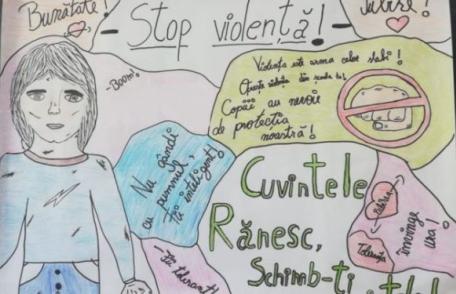 Bunătate!
- Stop violență! -
Iubire!
- Boom!
Violența este arma celor slabi!
Oprește violența din școala ta!
Copiii au nevoie
de protecția
noastră!
Nu gândi
cu pumnul,
fii inteligent!
Cuvintele
Rănesc,
Schimb-ți
Iubirea
Toleranța
învinge
ura!
- Fii tolerant!